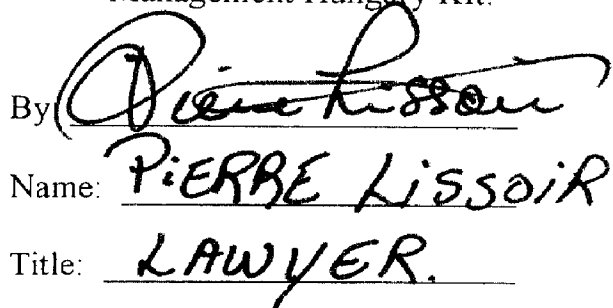 Management Hungary Kft.
By Pierre Lissoir
Name: PiERRE LiSSOiR
Title: LAWYER.